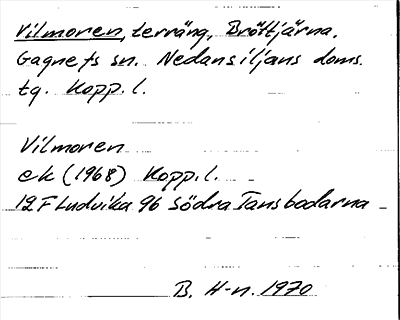 Vilmoren, terräng, Bröttjärna.
Gagnefs sn. Nedansiljans doms.
tg. Kopp. l.
Vilmoren
ek (1968) Kopp. l.
12 F Ludvika 9b Södra Tansbodarna
B. H-n. 1970